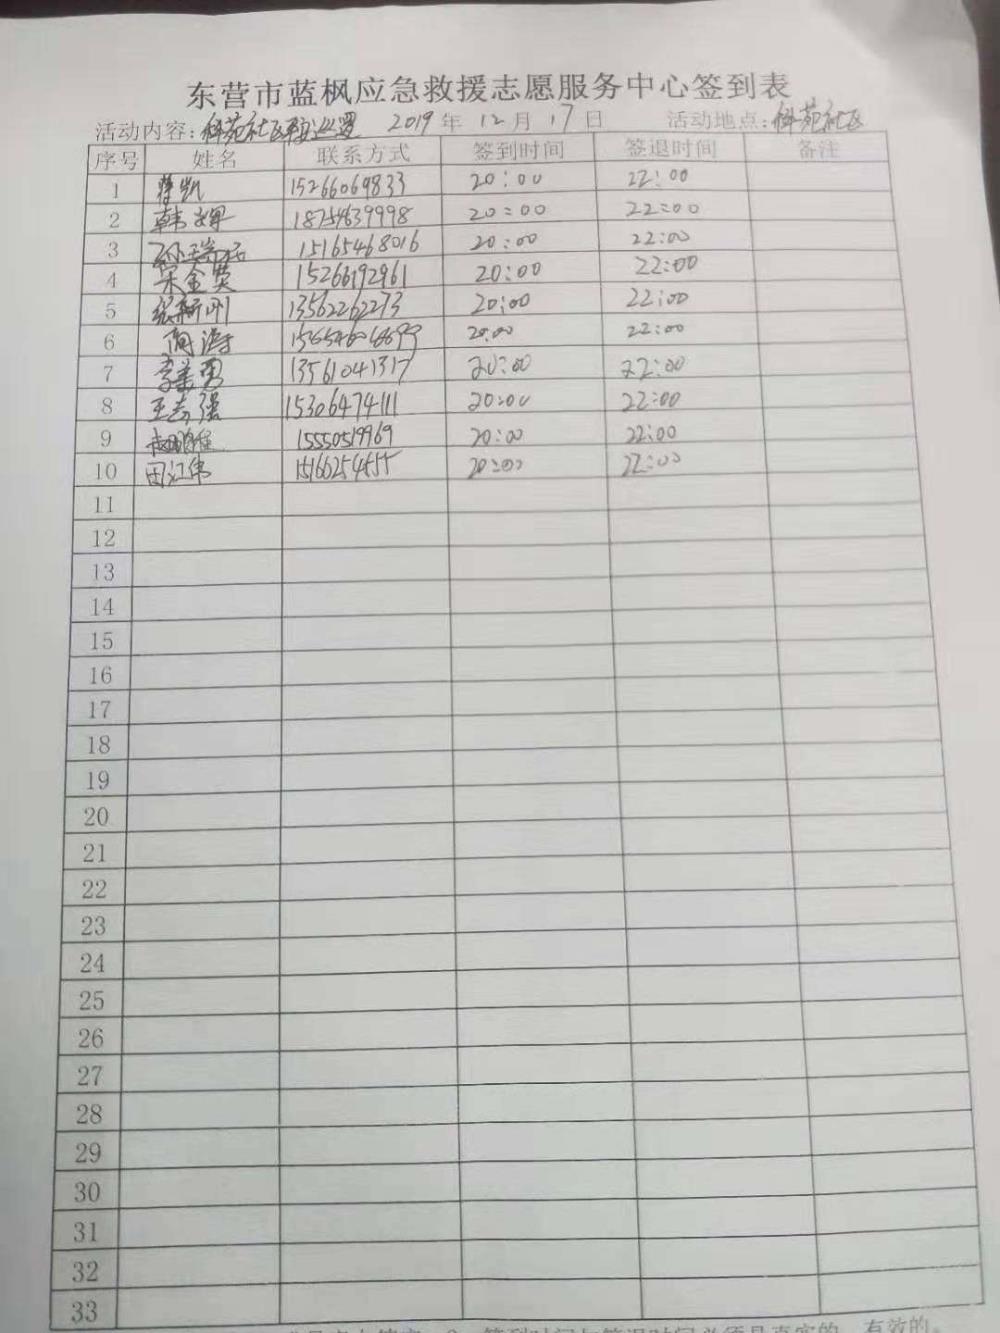 东营市蓝枫应急救援志愿服务中心签到表
活动内容:科苑社区巡逻 2019年12月17日 活动地点:科苑社区
序号 姓名 联系方式 签到时间 签退时间 备注
1 蒋凯 15266069833 20:00 22:00
2 韩辉 18754639998 20:00 22:00
3 15165468016 20:00 22:00
4 宋金英 15266192961 20:00 22:00
5 张新刚 13562262273 20:00 22:00
6 周涛 20:00 22:00
7 李美勇 13561041317 20:00 22:00
8 王志强 15306474111 20:00 22:00
9 15550519969 20:00 22:00
10 田江伟 20:00 22:00
11
12
13
14
15
16
17
18
19
20
21
22
23
24
25
26
27
28
29
30
31
32
33
有效的。